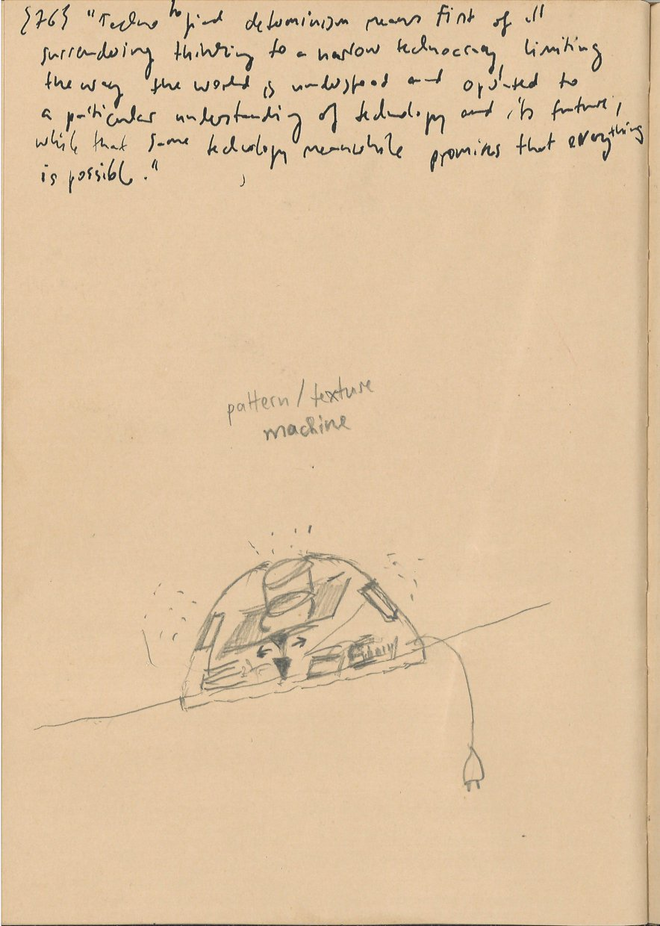 {76} "Technological determinism means first of all
surrendering thinking to a narrow technocracy limiting
the way the world is understood and operated to
a particular understanding of technology and its future,
while that same technology meanwhile promises that everything
is possible."
pattern/texture
machine